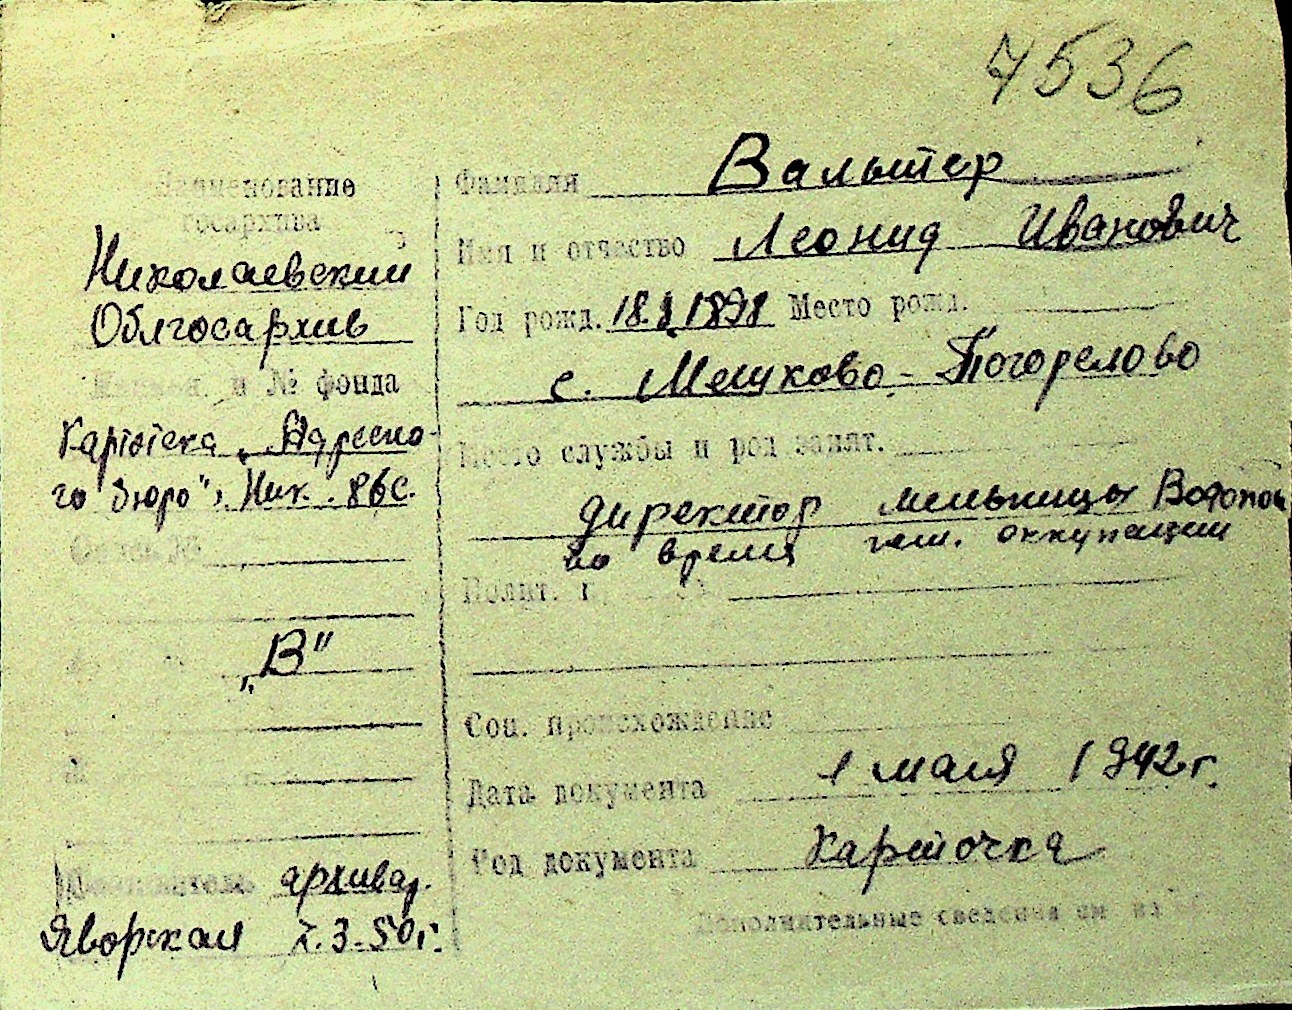 7536
Наименование
госархива
Николаевский
Облгосархив
и № фонда
Картотека „Адресно-
го бюро", Ник. 86с.
„В"
архивар.
Яворская 7.3-50г.
Фамилия Вальтер
Имя и отчество Леонид Иванович
Год рожд. 1898 Место рожд.
с. Мешково-Погорелово
Место службы и род занят.
директор мельницы Водопой
во время нем. оккупации
Полит.
Соц. происхождение
Дата документа 1 мая 1942г.
Род документа Карточка
Дополнительные сведения см. на